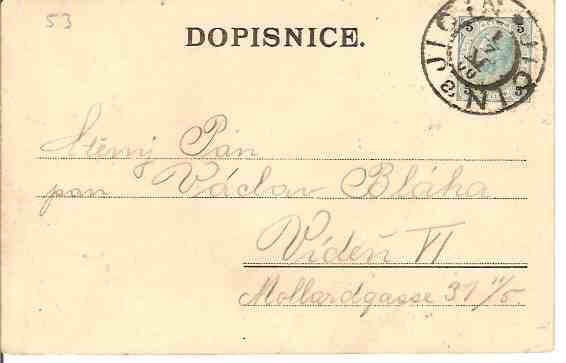 53
DOPISNICE.
JIČÍN * JIČIN
5 5
Pán
pan Václav Bláha
Vídeň VI
Mollardgasse 31